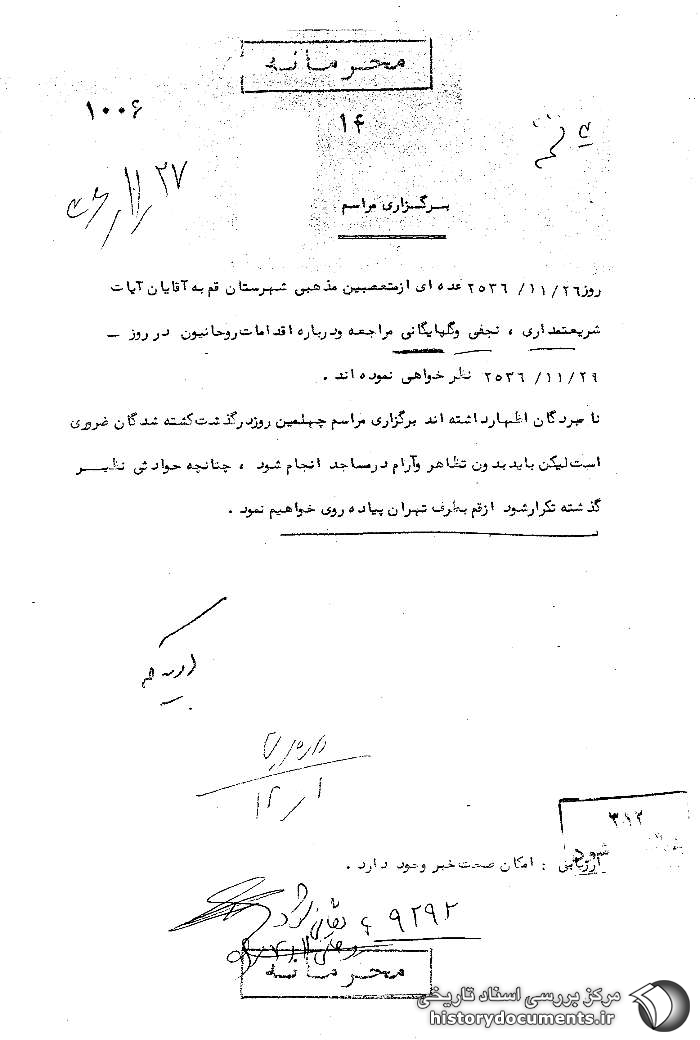 محرمانه
۱۰۰۶
۱۴
قم
۲۷
برگزاری مراسم
روز ۲۵۳۶/۱۱/۲۶ عده ای ازمتعصبین مذهبی شهرستان قم به آقایان آیات
شریعتمداری ، نجفی وگلپایگانی مراجعه ودرباره اقدامات روحانیون در روز –
۲۵۳۶/۱۱/۲۹ نظر خواهی نموده اند .
نامبردگان اظهارداشته اند برگزاری مراسم چهلمین روزدرگذشت کشته شدگان ضروری
است لیکن باید بدون تظاهر وآرام درمساجد انجام شود ، چنانچه حوادثی نظیر
گذشته تکرارشود ازقم بطرف تهران پیاده روی خواهیم نمود .
۳۱۲
ارزیابی : امکان صحت خبر وجود دارد .
۹۲۹۲
محرمانه
مرکز بررسی اسناد تاریخی
historydocuments.ir